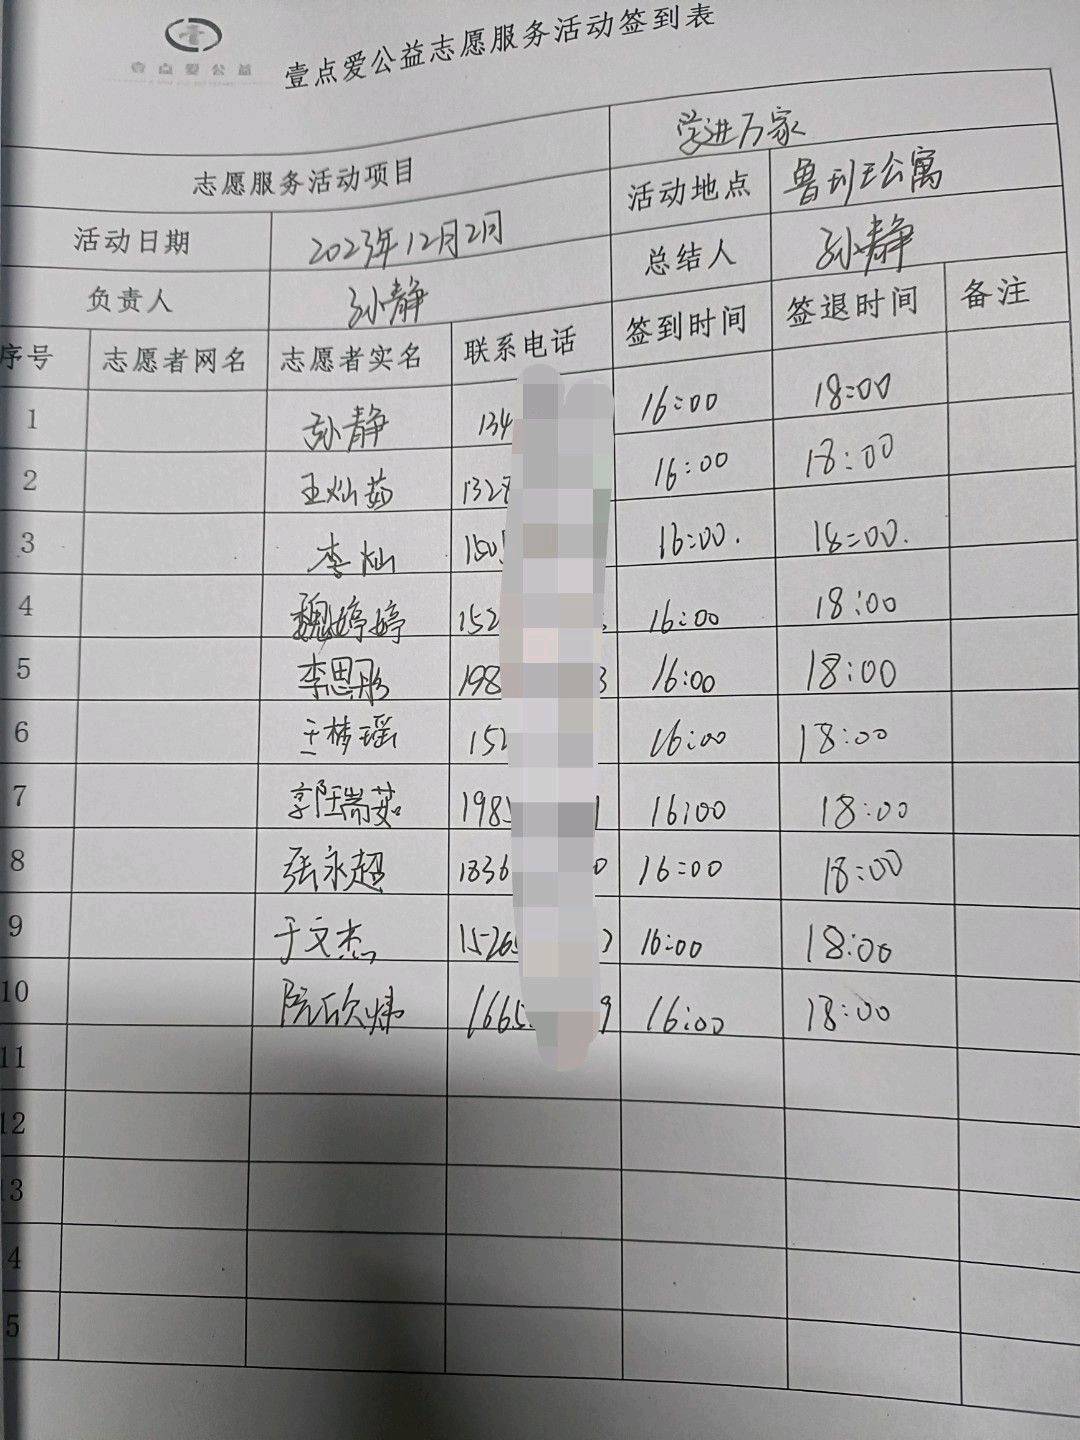 壹点爱公益
壹点爱公益志愿服务活动签到表
志愿服务活动项目 学进万家
活动日期 2023年12月2日 活动地点 鲁班公寓
负责人 孙静 总结人 孙静
序号 志愿者网名 志愿者实名 联系电话 签到时间 签退时间 备注
1 孙静 134 16:00 18:00
2 王灿茹 1328 16:00 18:00
3 李灿 150 16:00. 18:00.
4 魏婷婷 152 16:00 18:00
5 李思彤 198 3 16:00 18:00
6 王梦瑶 152 16:00 18:00
7 郭瑞茹 198 1 16:00 18:00
8 张永超 1836 0 16:00 18:00
9 于文杰 1526 16:00 18:00
10 阮欣炜 1665 9 16:00 18:00
11
12
13
4
5